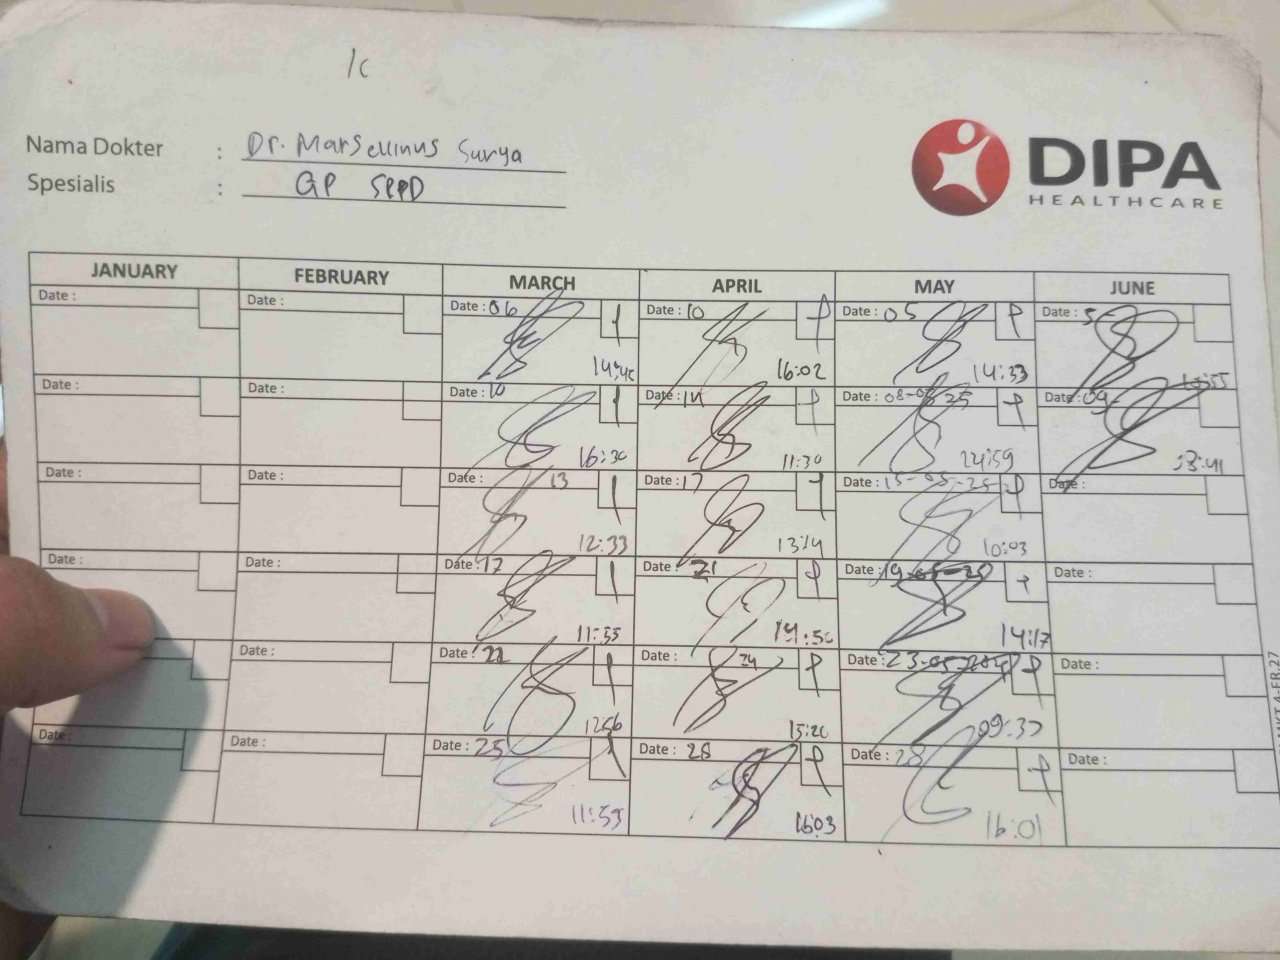 1c
Nama Dokter : Dr. Marsellinus Surya
Spesialis : GP SPPD
DIPA
HEALTHCARE
JANUARY FEBRUARY MARCH APRIL MAY JUNE
Date : Date : Date : 06 Date : 10 Date : 05 Date : 5-
16:02 14:33
Date : Date : Date : 10 Date : 14 Date : 08-05-25 Date : 09-
16:30 11:30 14:59
Date : Date : Date : 13 Date : 17 Date : 15-05-25 Date :
12:33 13:14 10:03
Date : Date : Date : 17 Date : 21 Date : 19-05-25 Date :
11:55 14:50 14:17
Date : Date : Date : 24 Date : 23-05- Date :
1256 15:20 09:37
Date : Date : Date : 25 Date : 28 Date : 28 Date :
11:59 16:03 16:01